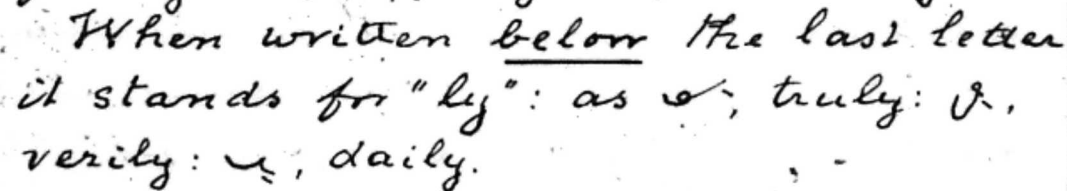 When written below the last letter
it stands for "ly": as , truly: ,
verily: , daily.